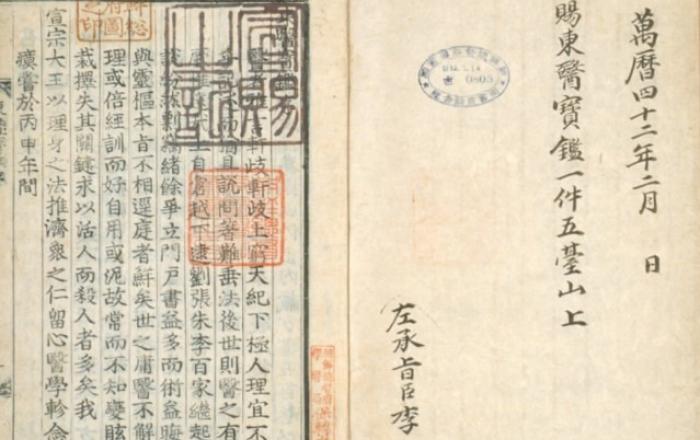 萬曆四十二年二月 日
賜東醫寶鑑一件五臺山上
左承旨臣李
0805
宣賜之記
醫者雅言軒岐軒岐上窮天紀下極人理宜不
而猶且設問著難垂法後世則醫之有
上自倉越下逮劉張朱李百家繼起
紛然剽竊緒餘爭立門戶書益多而術益晦
與靈樞本旨不相逕庭者鮮矣世之庸醫不解
理或倍經訓而好自用或泥故常而不知變眩
裁擇失其關鍵求以活人而殺人者多矣我
宣宗大王以理身之法推濟衆之仁留心醫學軫念
瘼嘗於丙申年間